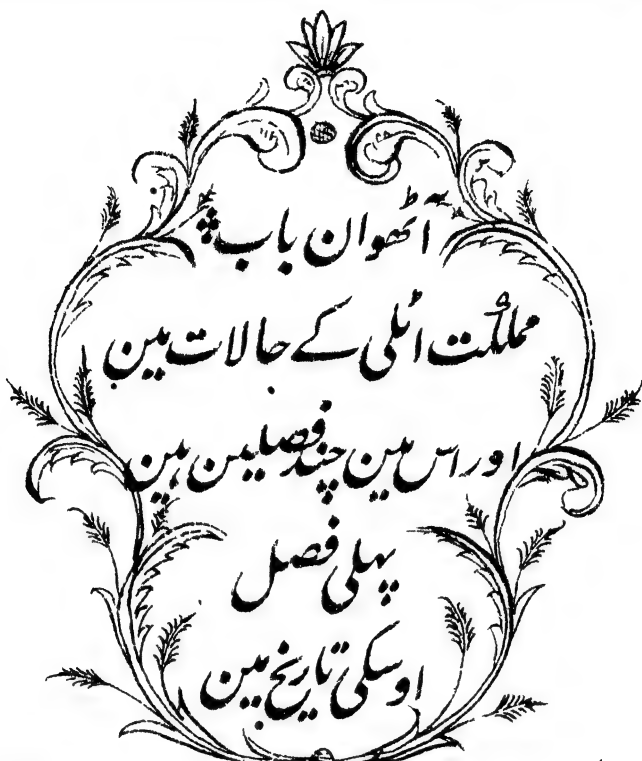 آٹھوان باب
مملکت اٹلی کے حالات مین
اور اس مین چند فصلیین ہین
پہلی فصل
اوسکی تاریخ مین